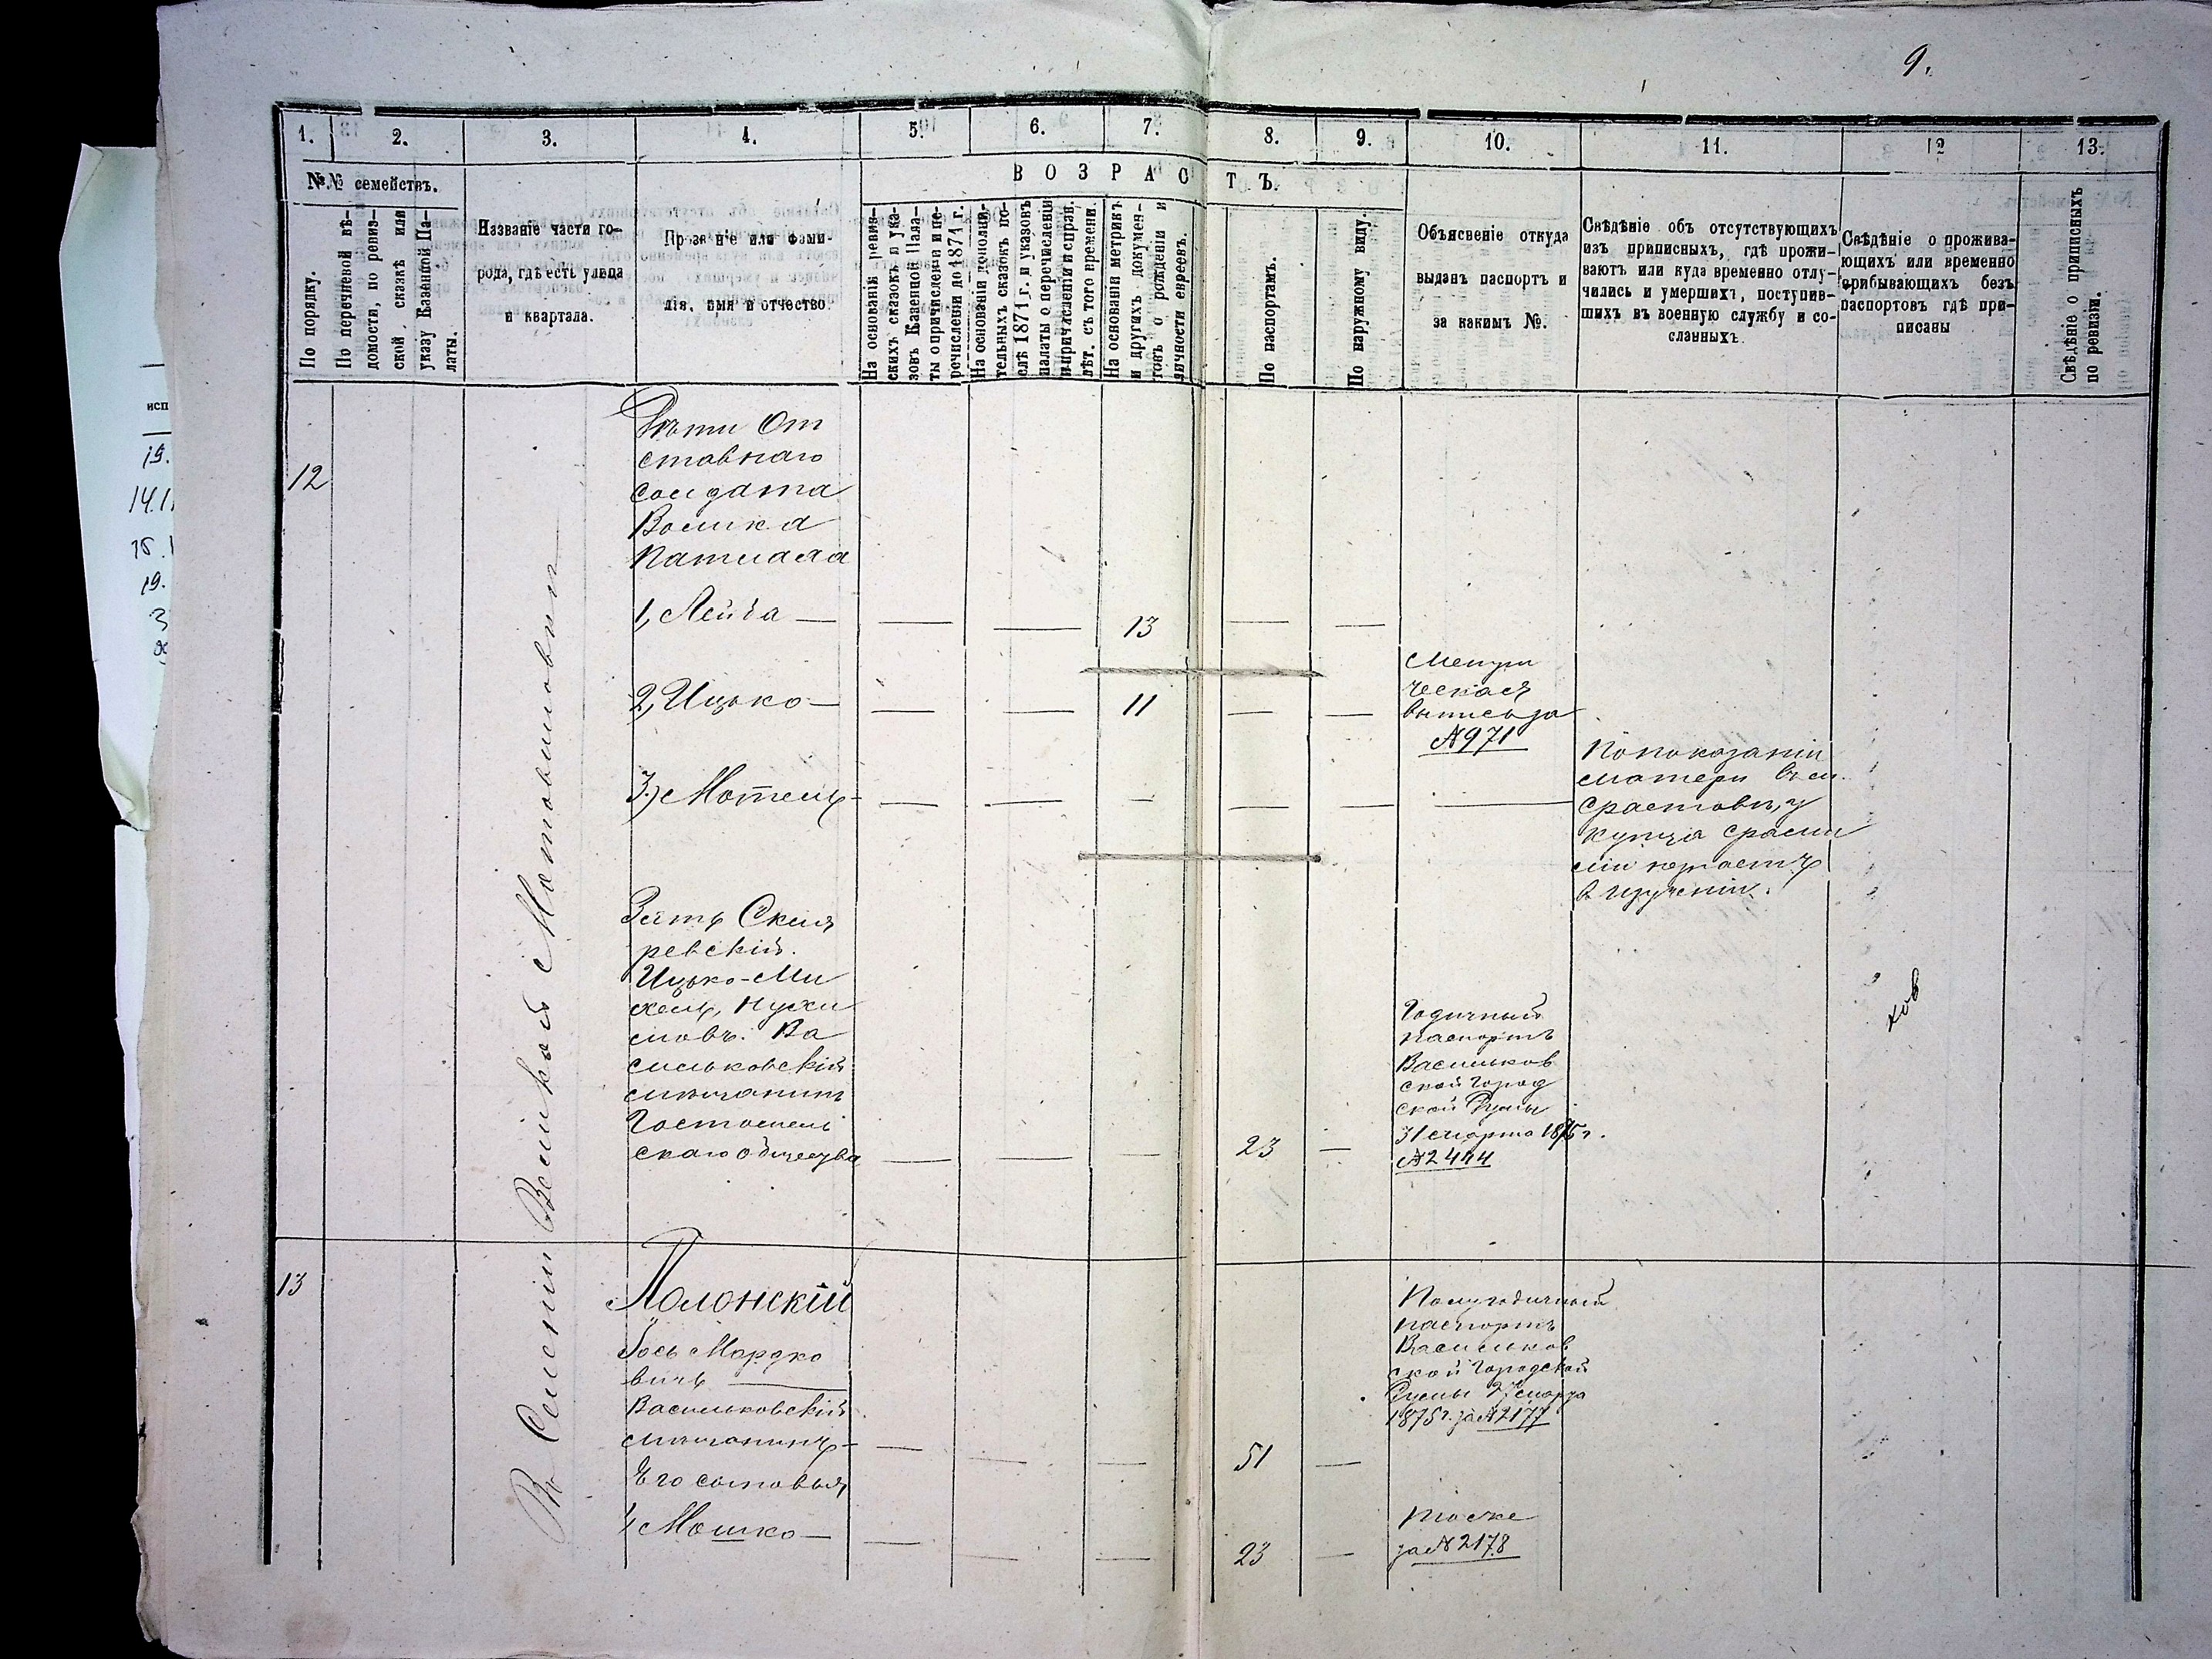 9.
1.
2.
3.
4.
5.
6.
7.
8.
9.
10.
11.
12
13.
№№ семействъ.
ВОЗРАСТЪ.
По порядку.
По перечневой вѣ-
домости, по ревиз-
ской, сказкѣ или
указу Казенной Па-
латы.
Названіе части го-
рода, гдѣ есть улица
и квартала.
Прозваніе или фами-
лія, имя и отчество
На основаніи ревиз-
скихъ сказокъ и ука-
зовъ Казенной Пала-
ты о причисленіи и пе-
речисленіи до 1874 г.
На основаніи дополни-
тельныхъ сказокъ по-
слѣ 1871 г. и указовъ
палаты о перечисленіи
и причисленіи и справ.
лѣт. съ того времени.
На основаніи метрикъ
и другихъ докумен-
товъ о рожденіи и
личности евреевъ.
По паспортамъ.
По наружному виду.
Объясненіе откуда
выданъ паспортъ и
за какимъ №.
Свѣдѣніе объ отсутствующихъ
изъ приписныхъ, гдѣ прожи-
ваютъ или куда временно отлу-
чились и умершихъ, поступив-
шихъ въ военную службу и со-
сланныхъ.
Свѣдѣніе о прожива-
ющихъ или временно
прибывающихъ безъ
паспортовъ гдѣ при-
писаны
Свѣдѣніе о приписныхъ
по ревизіи.
12
Дѣти От
ставнаго
солдата
Волька
1, Лейба —
13
2, Ицько —
11
Метри
ческая
выпись за
№ 971
3.) Мотель —
По показанію
матери въ м.
у
купца
Зять Скля
ревскій.
Ицько-Ми
хель, Нухи
мовъ. Ва
сильковскій
мѣщанинъ
скаго общества
23
Годичный
паспортъ
Васильков
ской Город
ской Думы
31 марта 1875 г.
№ 2444
13
Полонскій
Іось Мордко
вичъ
Васильковскій
мѣщанинъ —
51
Полугодичный
паспортъ
Васильков
ской Городской
Думы марта
1875 г. за № 2177
Его сыновья,
1, Мошко —
23
тоже
за № 2178
исп
19.